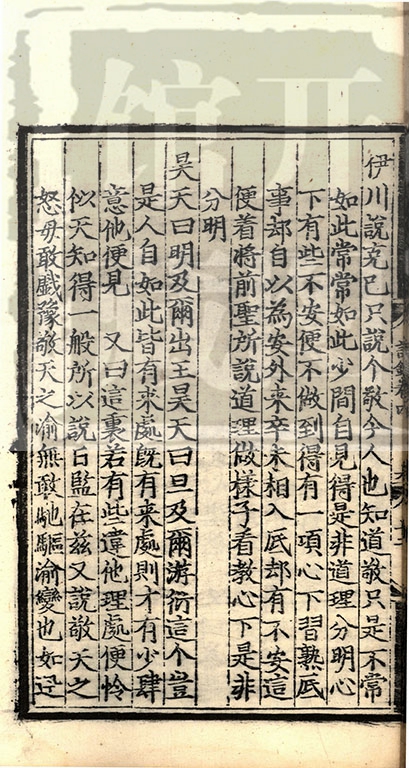 伊川說克己只說个敬今人也知道敬只是不常
如此常常如此少間自見得是非道理分明心
下有些不安便不做到得有一項心下習熟底
事却自以為安外来卒未相入底却有不安這
便着將前聖所說道理做樣子看教心下是非
分明
昊天曰明及爾出王昊天曰旦及爾游衍這个豈
是人自如此皆有来處旣有来處則才有少肆
意他便見 又曰這裏若有些違他理處便恰
似天知得一般所以說日監在兹又說敬天之
怒毋敢戲豫敬天之渝無敢馳驅渝變也如迂